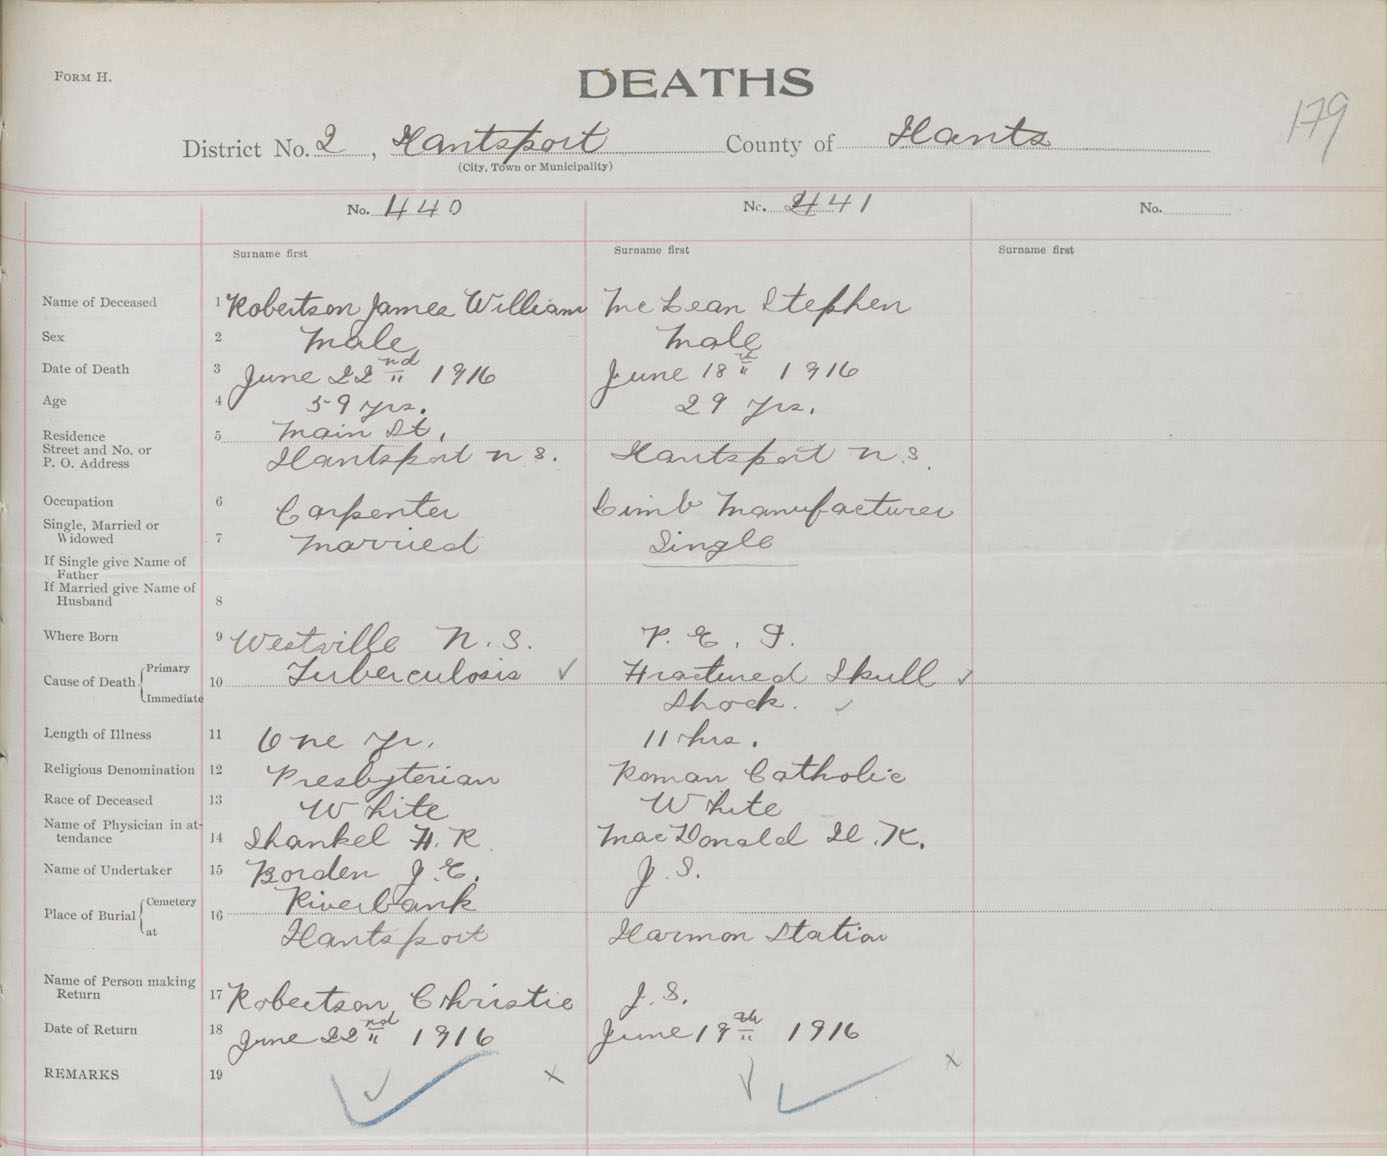 FORM H.
DEATHS
179
District No. 2, Hantsport County of Hants
(City, Town or Municipality)
No. 440 No. 441 No.
Surname first Surname first Surname first
Name of Deceased 1 Robertson James William McLean Stephen
Sex 2 Male Male
Date of Death 3 June 22nd 1916 June 18th 1916
Age 4 59 yrs. 29 yrs.
Residence 5 Main St.
Street and No. or
P. O. Address Hantsport N S. Hantsport N.S.
Occupation 6 Carpenter Limb Manufacturer
Single, Married or
Widowed 7 Married Single
If Single give Name of
Father
If Married give Name of
Husband 8
Where Born 9 Westville N.S. P.E.I.
Cause of Death { Primary 10 Tuberculosis ✓ Fractured Skull ✓
Immediate Shock. ✓
Length of Illness 11 One yr. 11 hrs.
Religious Denomination 12 Presbyterian Roman Catholic
Race of Deceased 13 White White
Name of Physician in at-
tendance 14 Shankel H. R. MacDonald K.
Name of Undertaker 15 Borden J. E. J. S.
Place of Burial { Cemetery 16 Riverbank
at Hantsport Harmon Station
Name of Person making
Return 17 Robertson Christie J. S.
Date of Return 18 June 22nd 1916 June 19th 1916
REMARKS 19 ✓ x ✓ x